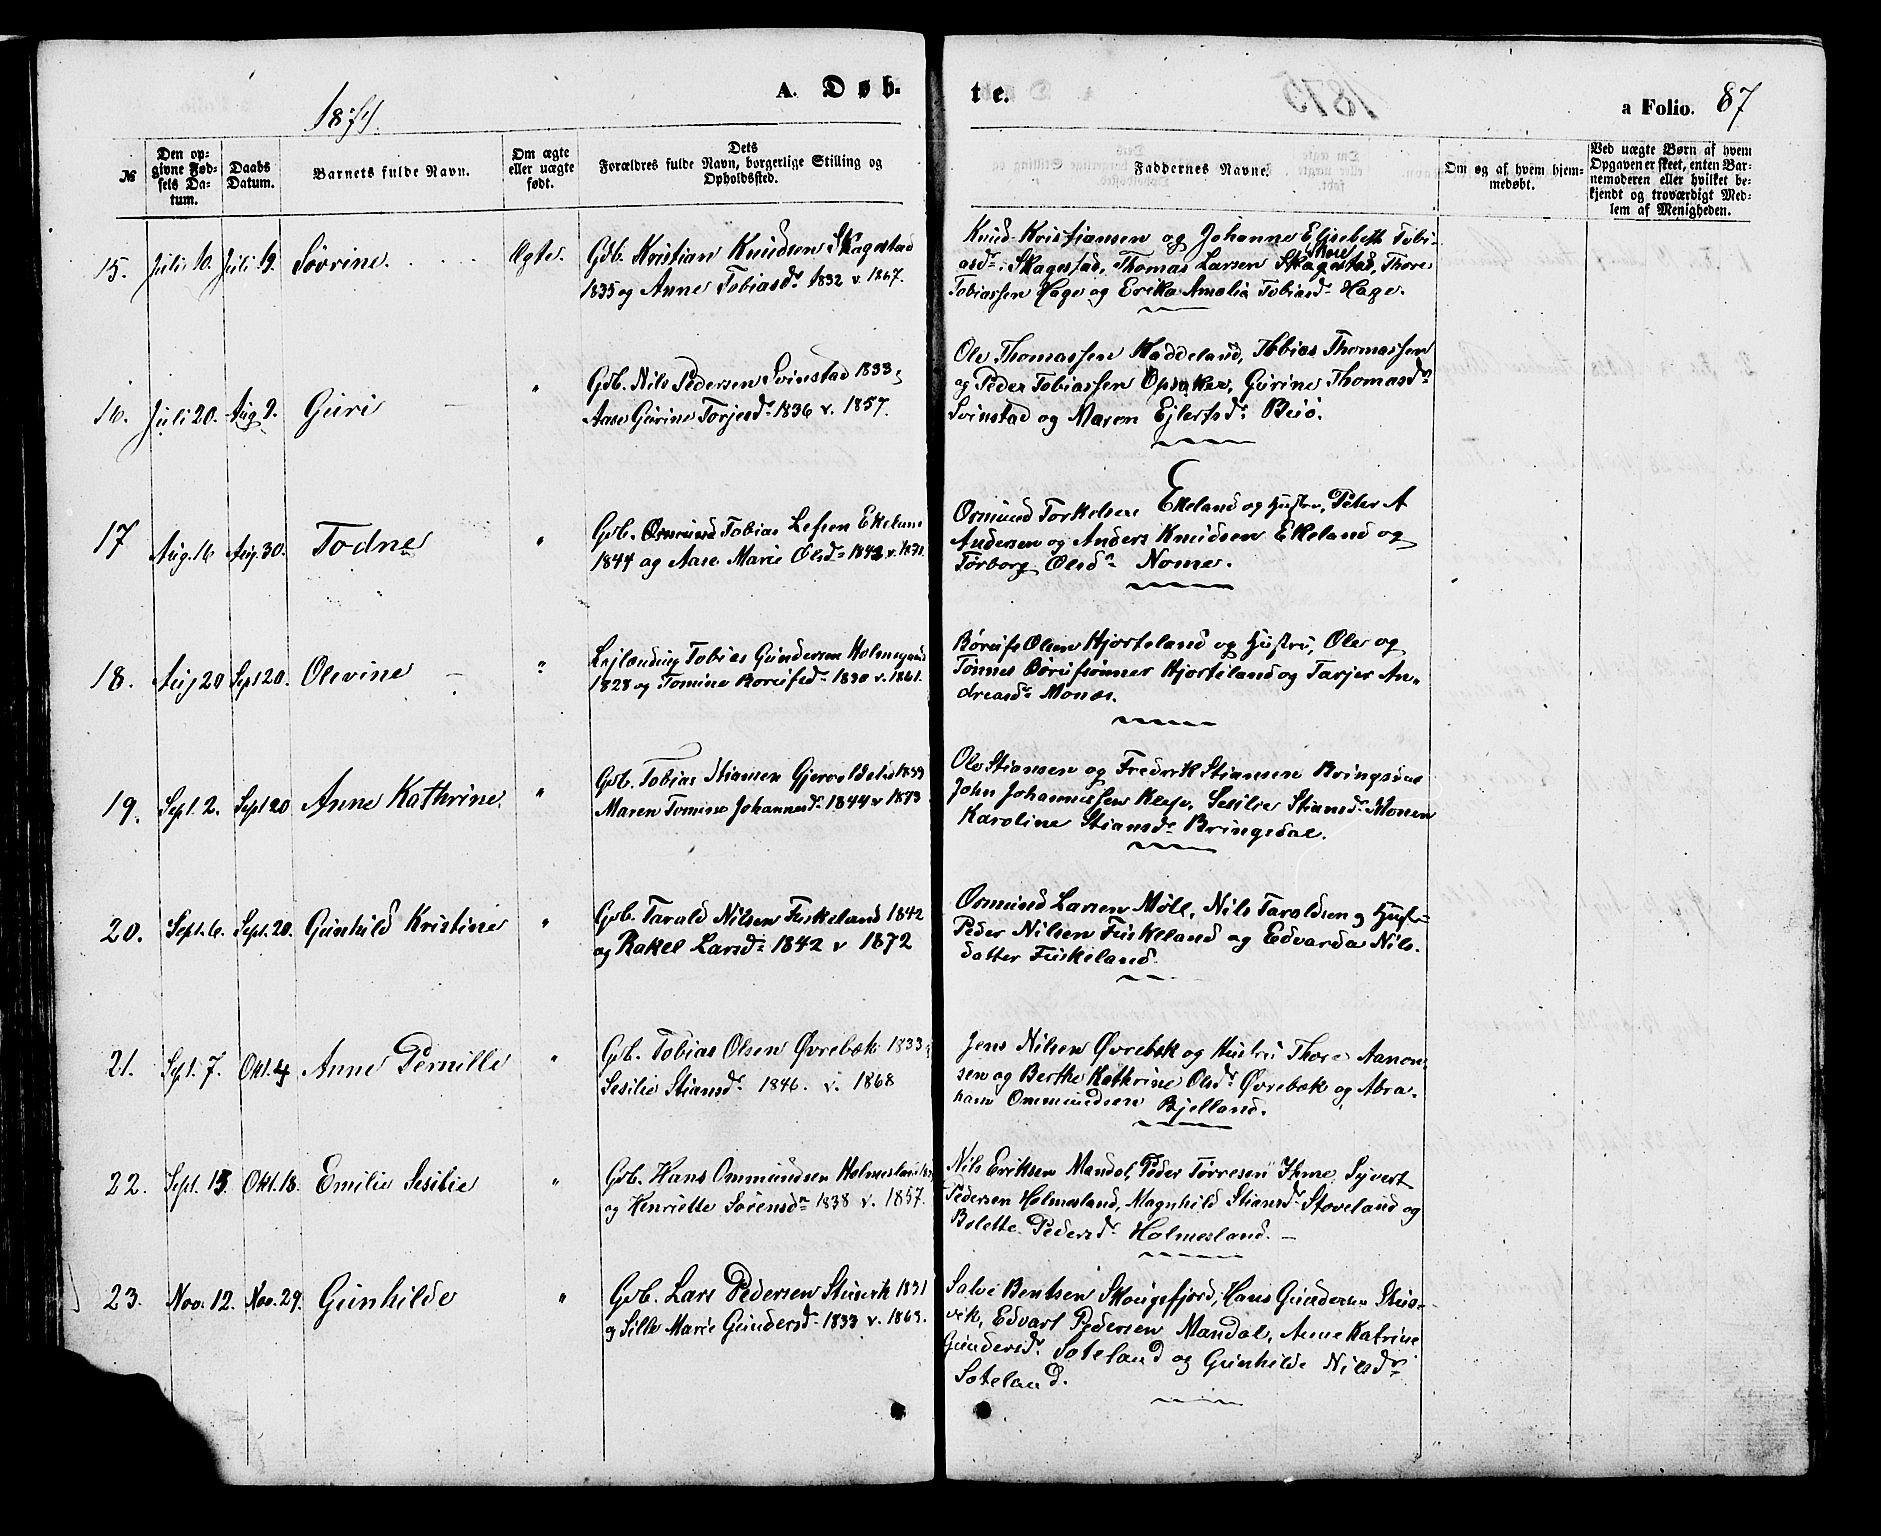 A. Døb-
te.
a Folio. 87
1874.
№
Den op-
givne Fød-
sels Da-
tum.
Daabs
Datum.
Barnets fulde Navn.
Om ægte
eller uægte
født.
Dets
Forældres fulde Navn, borgerlige Stilling og
Opholdssted.
Faddernes Navne.
Om og af hvem hjem-
medøbt.
Ved uægte Børn af hvem
Opgaven er skeet, enten Bar-
nemoderen eller hvilket be-
kjendt og troværdigt Med-
lem af Menigheden.
15. Juli 6. Juli 19. Sørine. Ægte. Gdb. Kristian Knudsen Skagestad
1835 og Anne Tobiasdr. 1832 v. 1867.
Knud Kristiansen og Johanne Elisabeth Tobi-
asdr. Skagestad, Thomas Larsen Skagestad, Thore
Tobiassen Hage og Erika Amalia Tobiasdr. Hage.
16. Juli 20. Aug 9. Guri " Gdb. Nils Pedersen Svinstad 1833 &
Aase Gurine Torjesdr. 1836 v. 1857.
Ole Thomassen Haddeland, Tobias Thomassen
og Peder Tobiassen Opsaker, Gurine Thomasdr.
Svinstad og Maren Ejlertsdr. Buø.
17 Aug. 16 Aug 30. Todne " Gdb. Osmund Tobias Lefsen Ekeland
1844 og Aase Marie Olsdr. 1842 v.
Osmund Torkelsen Ekeland og Hustru, Peter A
Andersen og Anders Knudsen Ekeland og
Torborg Olsdr. Nome.
18. Aug 20 Sept 20. Olevine " Lejlænding Tobias Gundersen
1828 og Tomine Boreifsdr. 1830 v. 1861.
Børeif Olsen Hjorteland og Hustru, Ole og
Tønnes Børeifsønner Hjorteland og Tarjer An-
dreasdr. Monæs.
19. Sept. 2. Sept 20 Anne Kathrine. " Gdb. Tobias Stiansen 1839
Maren Tomine Johannesdr. 1844 v 1873
Ole Stiansen og Fredrik Stiansen Bringsdal
John Johannessen Kleje, Sesilie Stiansdr. Monen
Karoline Stiansdr. Bringsdal.
20. Sept. 6. Sept. 20. Gunhild Kristine " Gdb. Tarald Nilsen Fuskeland 1842
og Rakel Larsdr. 1842 v 1872
Osmund Larsen Møll, Nils Taraldsen og Hustr.
Peder Nilsen Fuskeland og Edvarda Nils-
datter Fuskeland.
21. Sept. 7. Okt. 4 Anne Pernille " Gdb. Tobias Olsen Øvrebæk 1833 &
Sesilie Stiansdr. 1846. v. 1868
Jens Nilsen Øvrebæk og Hustru Thore Aanon-
sen og Berthe Kathrine Olsdr. Øvrebæk og Abra-
ham Ommundsen Bjelland.
22. Sept. 13. Okt. 18. Emilie Sesilie " Gdb. Hans Ommundsen Holmesland
og Henriette Sørensdr. 1838 v. 1857.
Nils Eriksen Mandal, Peder Torresen Ihme, Syvert
Pedersen Holmesland, Magnhild Stiansdr. Stoveland og
Bolette Pedersdr. Holmesland.
23. Nov. 12. Nov. 29. Gunhilde " Gdb. Lars Pedersen Stusvik 1831
og Sille Marie Gundersdr. 1833 v. 1863.
Salve Bentsen Skougefjord, Hans Gundersen Stus-
vik, Edvart Pedersen Mandal, Anne Katrine
Gundersdr. Soteland og Gunhilde Nilsdr.
Soteland.